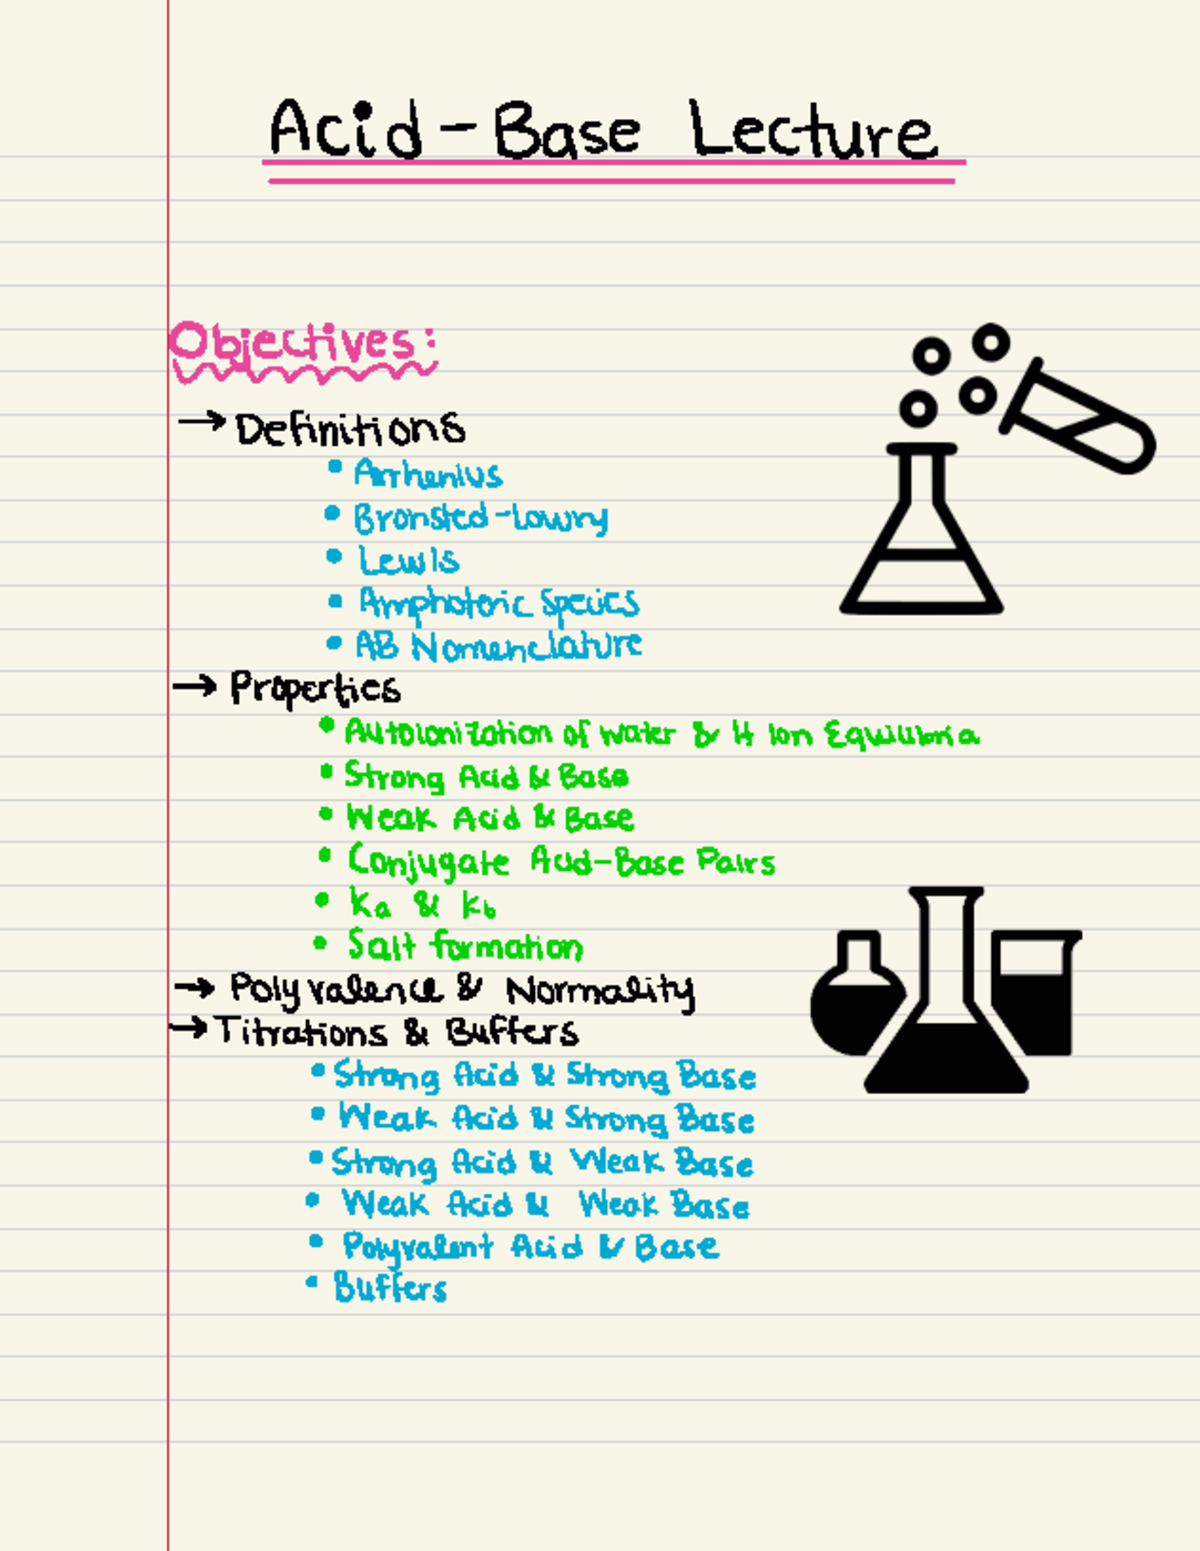 Acid-Base Lecture
Objectives:
→ Definitions
• Arrhenius
• Bronsted-Lowry
• Lewis
• Amphoteric Species
• AB Nomenclature
→ Properties
• Autoionization of water & H Ion Equilibria
• Strong Acid & Base
• Weak Acid & Base
• Conjugate Acid-Base Pairs
• Ka & Kb
• Salt formation
→ Polyvalence & Normality
→ Titrations & Buffers
• Strong Acid & Strong Base
• Weak Acid & Strong Base
• Strong Acid & Weak Base
• Weak Acid & Weak Base
• Polyvalent Acid & Base
• Buffers